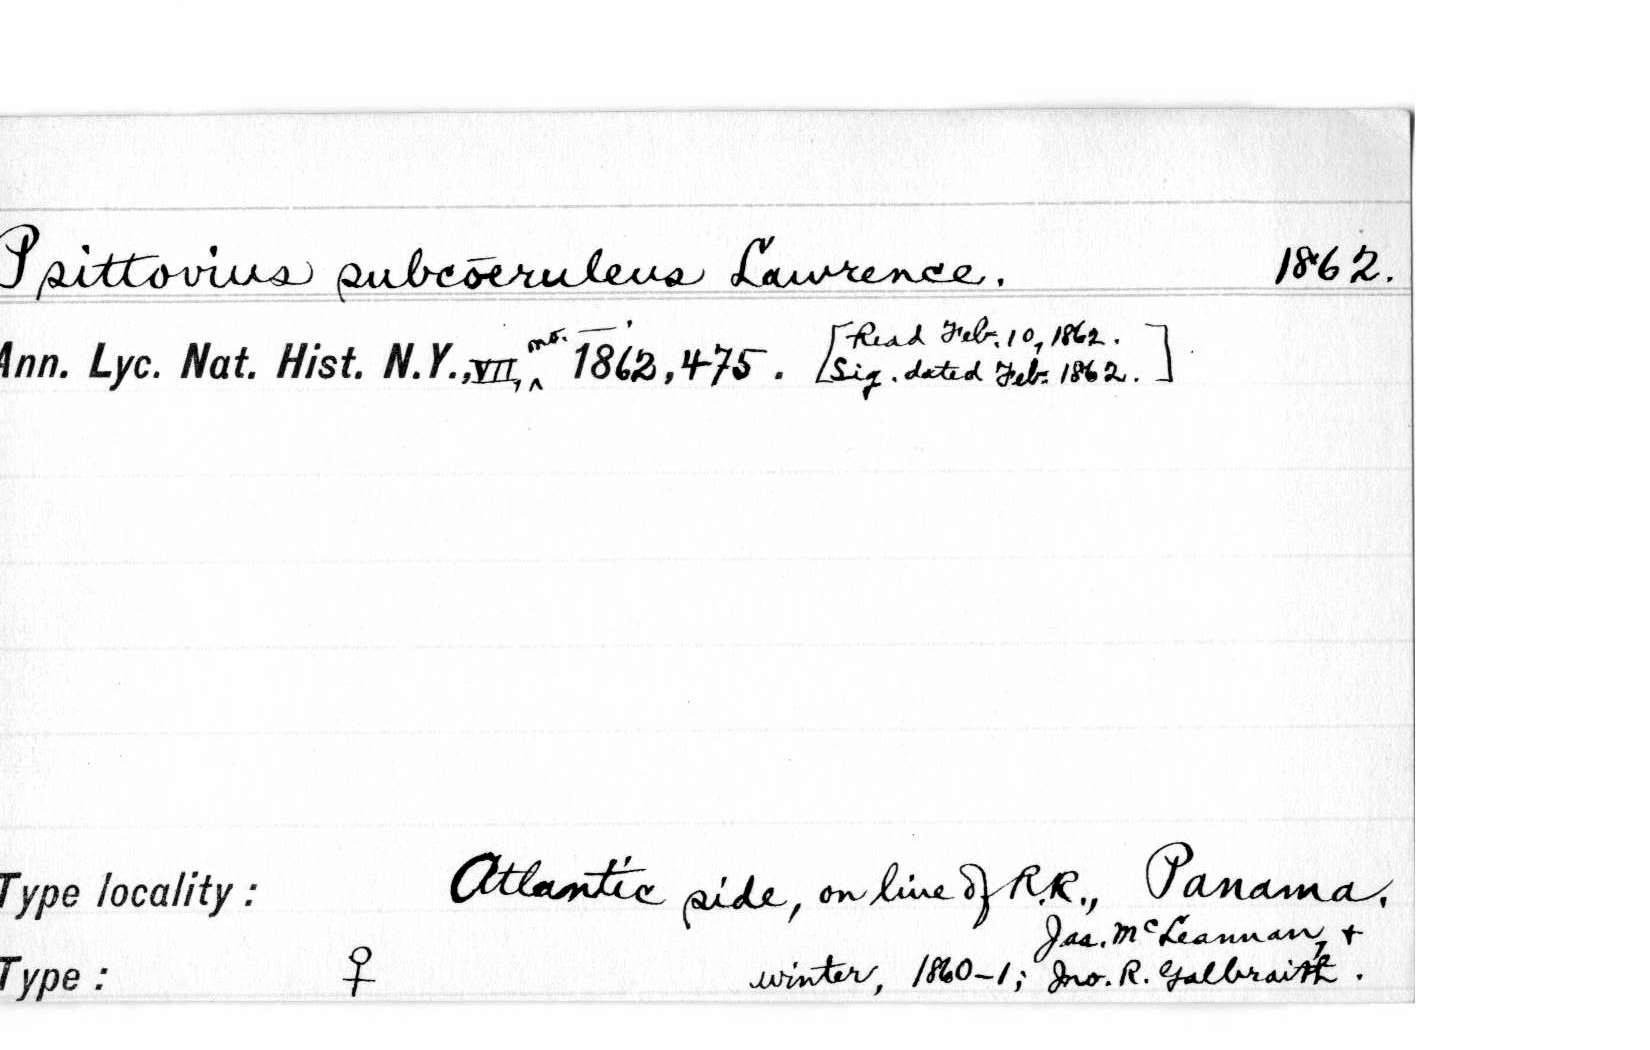 Psittovius subcoeruleus Lawrence. 1862.
Ann. Lyc. Nat. Hist. N.Y., VII, no. —, 1862, 475. [Read Feb. 10, 1862.
Sig. dated Feb. 1862.]
Type locality: Atlantic side, on line of R.R., Panama.
Jas. McLeannan, +
Type: ♀ winter, 1860-1; Jno. R. Galbraith.